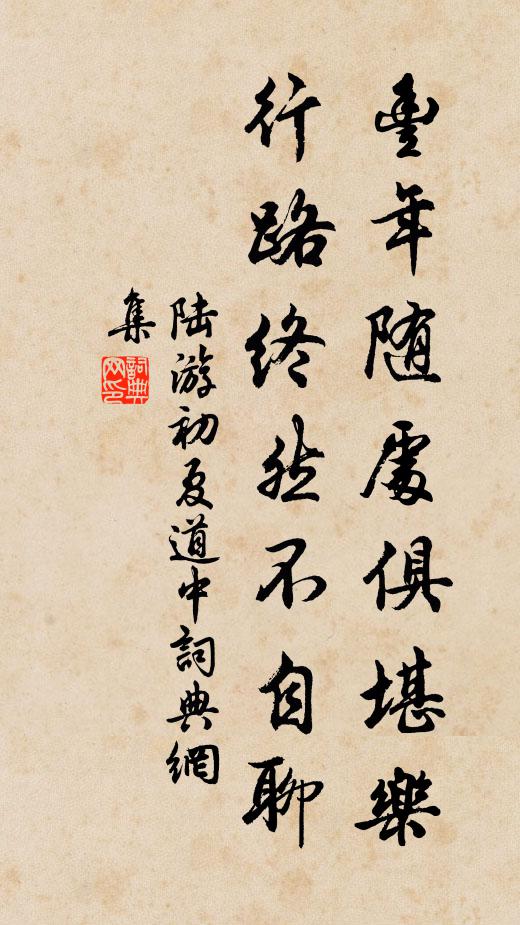 豐年隨處俱堪樂
行路終然不自聊
陆游初夏道中詞典網
集
詞典网印